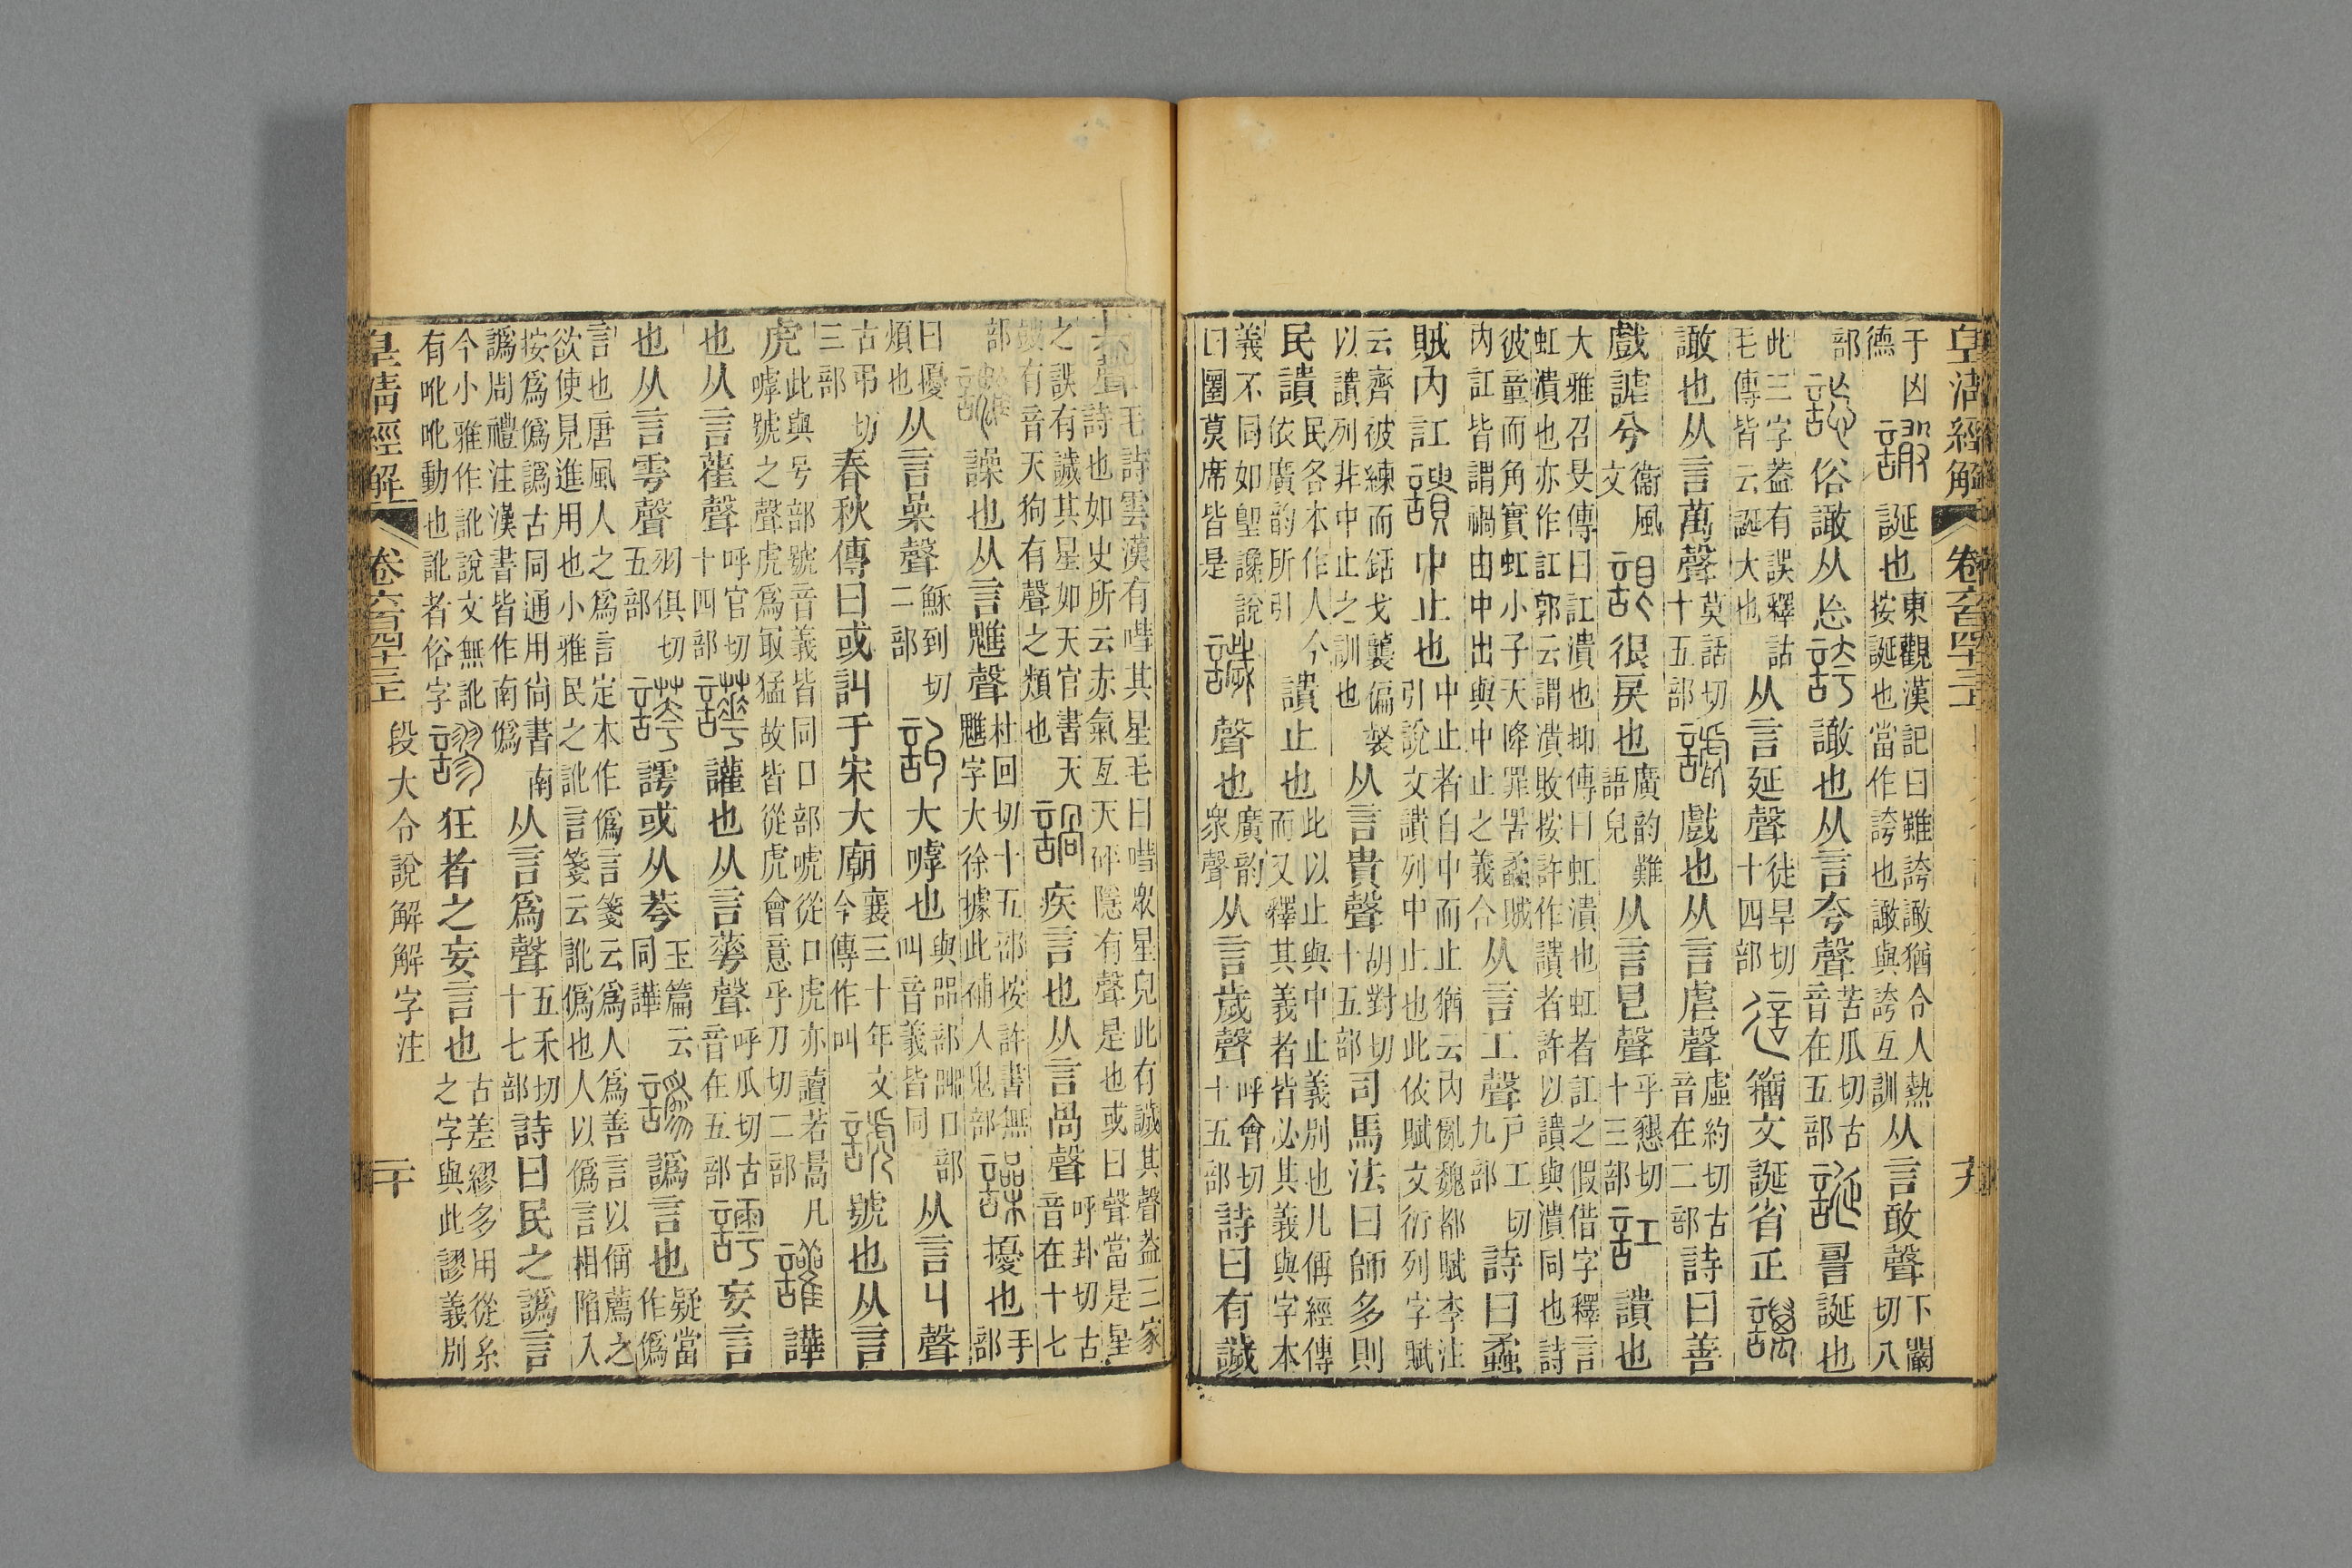 皇清經解 卷六百四十三 十九
于凶德 誕也東觀漢記曰雖誇譀猶令人熱按誕也當作誇也譀與誇互訓从言敢聲下闞切八
部 俗譀从忘 譀也从言夸聲苦瓜切古音在五部 䛐誕也
此三字葢有誤釋詁毛傳皆云誕大也从言延聲徒旱切十四部 籒文誕省正
譀也从言萬聲莫話切十五部 戲也从言虐聲虛約切古音在二部詩曰善
戲謔兮衞風文 很戾也廣韵難語皃从言皀聲乎懇切十三部 䜋也
大雅召旻傳曰訌潰也抑傳曰虹潰也虹者訌之假借字釋言虹潰也亦作訌郭云謂潰敗按許作䜋者許以䜋與潰同也詩
彼童而角實虹小子天降罪罟蟊賊內訌皆謂禍由中出與中止之義合从言工聲戶工切九部詩曰蟊
賊內訌 中止也中止者自中而止猶云內亂魏都賦李注引說文䜋列中止也此依賦文衍列字賦
云齊被練而銛戈襲偏裻以䜋列非中止之訓也从言貴聲胡對切十五部司馬法曰師多則
民䜋民各本作人今依廣韵所引䜋止也此以止與中止義別也凡偁經傳而又釋其義者皆必其義與字本
義不同如堲讒說曰圛莫席皆是 聲也廣韵衆聲从言歲聲呼會切十五部詩曰有𧬨
其聲毛詩雲漢有嘒其星毛曰嘒衆星皃此有𧬨其聲葢三家詩也如史所云赤氣亙天砰隱有聲是也或曰聲當是星
之誤有𧬨其星如天官書天鼓有音天狗有聲之類也 疾言也从言咼聲呼卦切古音在十七
部 譟也从言魋聲杜回切十五部按許書無魋字大徐據此補入鬼部 擾也手部
曰擾煩也从言喿聲穌到切二部 大嘑也與㗊部嘂口部叫音義皆同从言丩聲
古弔切三部春秋傳曰或訆于宋大廟襄三十年文今傳作叫 號也从言
虎此與号部號音義皆同口部唬從口虎亦讀若暠凡嘑號之聲虎爲冣猛故皆從虎會意乎刀切二部 譁
也从言雚聲呼官切十四部 讙也从言華聲呼瓜切古音在五部 妄言
也从言雩聲羽俱切五部 謣或从荂玉篇云同譁 譌言也疑當作僞
言也唐風人之爲言定本作僞言箋云爲人爲善言以偁薦之欲使見進用也小雅民之訛言箋云訛僞也人以僞言相陷入
按爲僞譌古同通用尙書南譌周禮注漢書皆作南僞从言爲聲五禾切十七部詩曰民之譌言
今小雅作訛說文無訛有吪吪動也訛者俗字 狂者之妄言也古差繆多用從糸之字與此謬義別
皇清經解 卷六百四十三 段大令說解解字注 二十